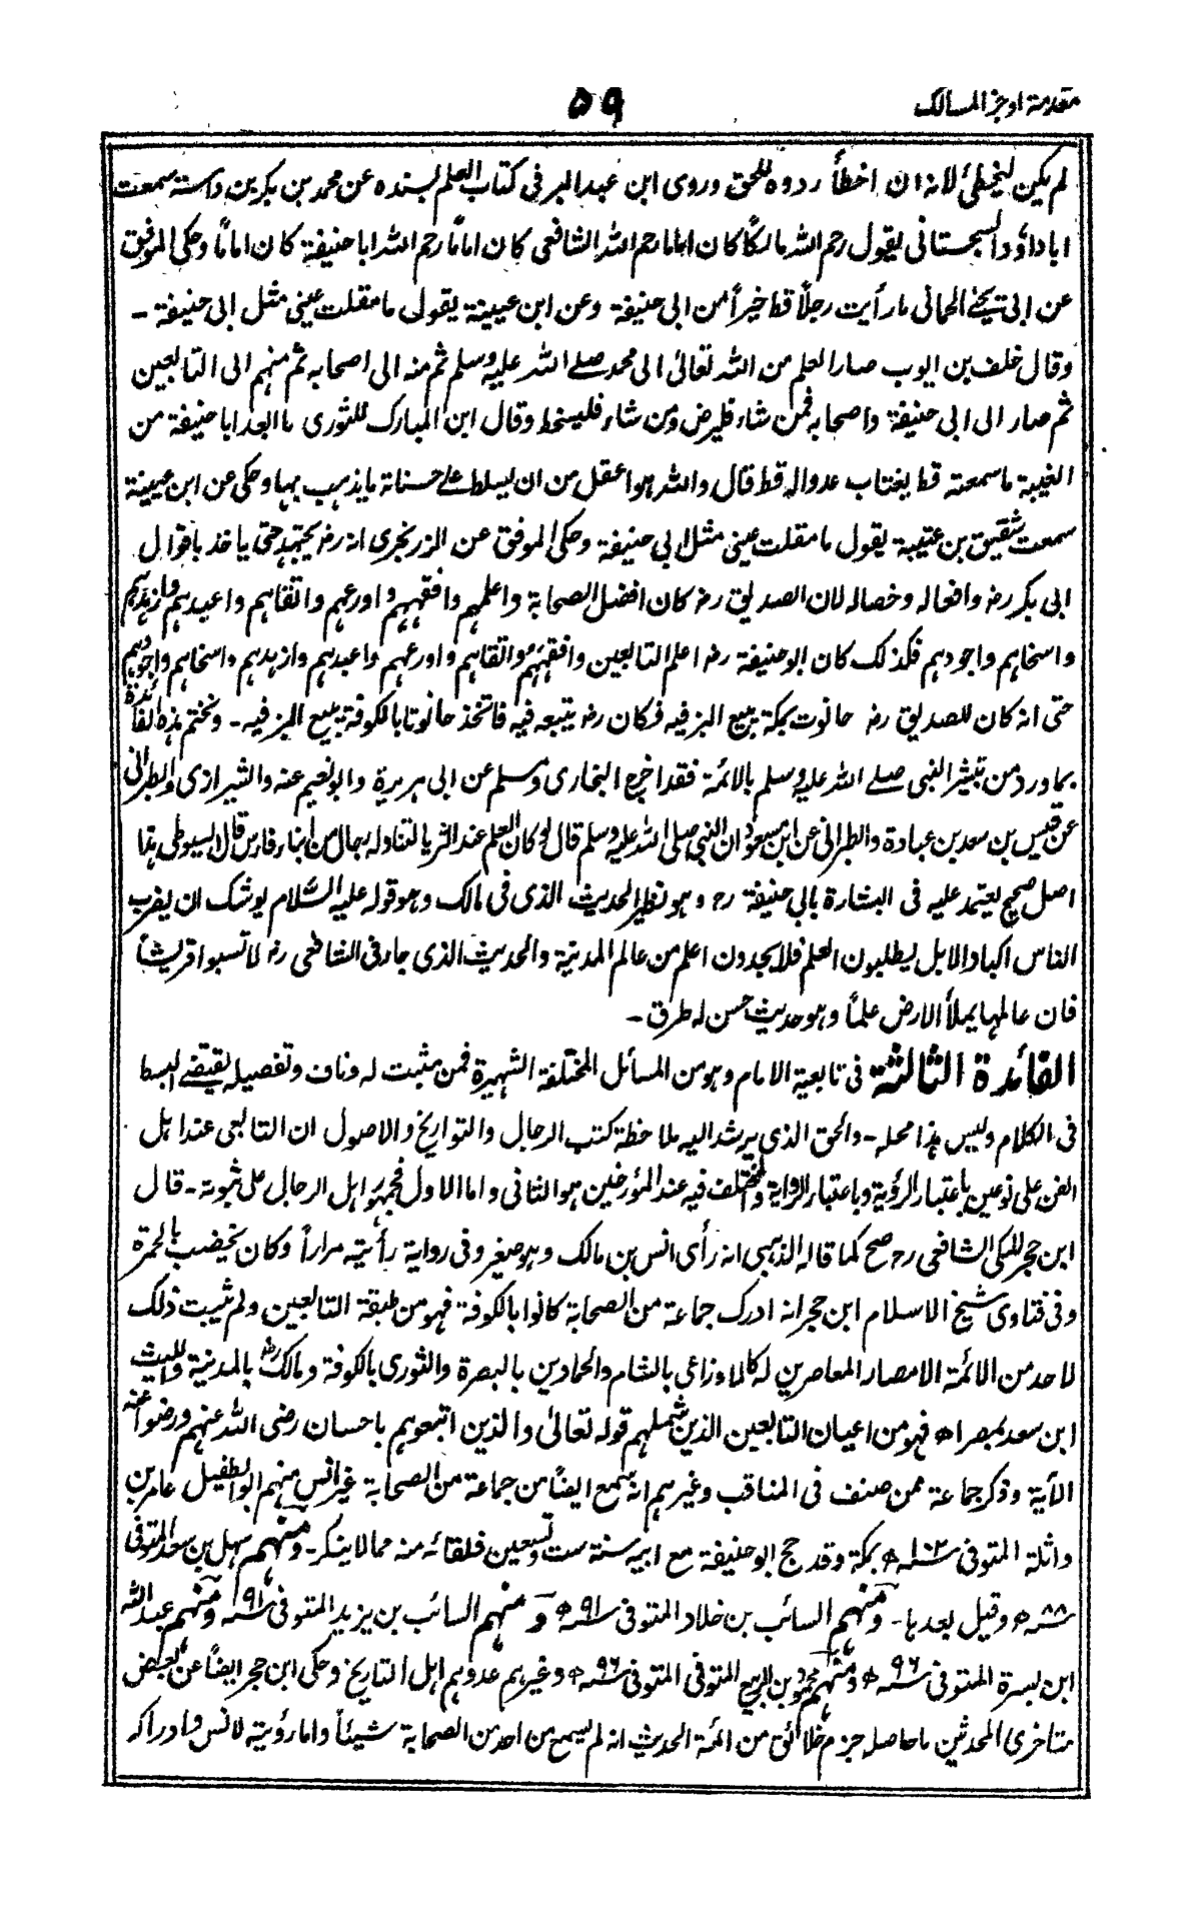 مقدمة اوجز المسالک
٥٩
لم یکن لیخطئ لانه ان اخطأ ردوه للحق وروی ابن عبد البر فی کتاب العلم بسنده عن محمد بن بکر بن داسته سمعت
ابا داؤد السجستانی یقول رحم الله مالکاً کان اماما رحم الله الشافعی کان اماماً رحم الله ابا حنیفة کان اماماً وحکی الموفق
عن ابی یحیٰی الحمانی ما رأیت رجلاً قط خیراً من ابی حنیفة وعن ابن عیینة یقول ما مقلت عینی مثل ابی حنیفة -
وقال خلف بن ایوب صار العلم من الله تعالیٰ الی محمد صلے الله علیه وسلم ثم منه الی اصحابه ثم منهم الی التابعین
ثم صار الی ابی حنیفة واصحابه فمن شاء فلیرض ومن شاء فلیسخط وقال ابن المبارک للثوری ما ابعد ابا حنیفة من
الغیبة ما سمعته قط یغتاب عدوا له قط قال والله هو اعقل من ان یسلط علے حسناته ما یذهب بها وحکی عن ابن عیینة
سمعت شقیق بن عتیبة یقول ما مقلت عینی مثل ابی حنیفة وحکی الموفق عن الزرنجری انه رض یجتهد حتی یاخذ باقوال
ابی بکر رض وافعاله وخصاله لان الصدیق رض کان افضل الصحابة واعلمهم وافقههم واورعهم واتقاهم واعبدهم وازهدهم
واسخاهم واجودهم فکذلک کان ابو حنیفة رض اعلم التابعین وافقههم واتقاهم واورعهم واعبدهم وازهدهم واسخاهم واجودهم
حتی انه کان للصدیق رض حانوت بمکة یبیع البز فیه فکان رض یتبعه فیه فاتخذ حانوتا بالکوفة یبیع البز فیه - ونختم هذه الفائدة
بما ورد من تبشیر النبی صلے الله علیه وسلم بالائمة فقد اخرج البخاری ومسلم عن ابی هریرة وابو نعیم عنه والشیرازی والطبرانی
عن قیس بن سعد بن عبادة والطبرانی عن ابن مسعود ان النبی صلی الله علیه وسلم قال لو کان العلم عند الثریا لتناوله رجال من ابناء فارس قال السیوطی هذا
اصل صحیح یعتمد علیه فی البشارة بابی حنیفة رح وهو نظیر الحدیث الذی فی مالک وهو قوله علیه السلام یوشک ان یضرب
الناس اکباد الابل یطلبون العلم فلا یجدون اعلم من عالم المدینة والحدیث الذی جاء فی الشافعی رض لا تسبوا قریشاً
فان عالمها یملأ الارض علماً وهو حدیث حسن له طرق -
الفائدة الثالثة فی تابعیة الامام وهو من المسائل المختلفة الشهیرة فمن مثبت له وناف وتفصیله یقتضے البسط
فی الکلام ولیس هذا محله - والحق الذی یرشد الیه ملاحظة کتب الرجال والتواریخ والاصول ان التابعی عند اهل
الفن علی نوعین باعتبار الرؤیة وباعتبار الروایة والمختلف فیه عند المؤرخین هو الثانی واما الاول فجمهور اهل الرجال علی ثبوته - قال
ابن حجر المکی الشافعی رح صح کما قاله الذهبی انه رأی انس بن مالک وهو صغیر وفی روایة رأیته مراراً وکان یخضب بالحمرة
وفی فتاوی شیخ الاسلام ابن حجر انه ادرک جماعة من الصحابة کانوا بالکوفة فهو من طبقة التابعین ولم یثبت ذلک
لاحد من الائمة الامصار المعاصرین له کالاوزاعی بالشام والحمادین بالبصرة والثوری بالکوفة ومالک رض بالمدینة واللیث
ابن سعد بمصر اھ فهو من اعیان التابعین الذین شملهم قوله تعالیٰ والذین اتبعوهم باحسان رضی الله عنهم ورضوا عنه
الآیة وذکر جماعة ممن صنف فی المناقب وغیرهم انه سمع ایضاً من جماعة من الصحابة غیر انس منهم ابو الطفیل عامر بن
واثلة المتوفی سنه ١٠٢ھ بمکة وقد حج ابو حنیفة مع ابیه سنة ست وتسعین فلقائه منه مما لا ینکر - ومنهم سهل بن سعد المتوفی
سنه ٨٨ھ وقیل بعدها - ومنهم السائب بن خلاد المتوفی سنه ٩١ھ ومنهم السائب بن یزید المتوفی سنه ٩١ھ ومنهم عبد الله
ابن بسرة المتوفی سنه ٩٦ھ ومنهم محمود بن الربیع المتوفی المتوفی سنه ٩٦ھ وغیرهم عدوهم اهل التاریخ وحکی ابن حجر ایضاً عن بعض
متاخری المحدثین ما حاصله جزم خلائق من ائمة الحدیث انه لم یسمع من احد من الصحابة شیئاً واما رؤیته لانس وادراکه